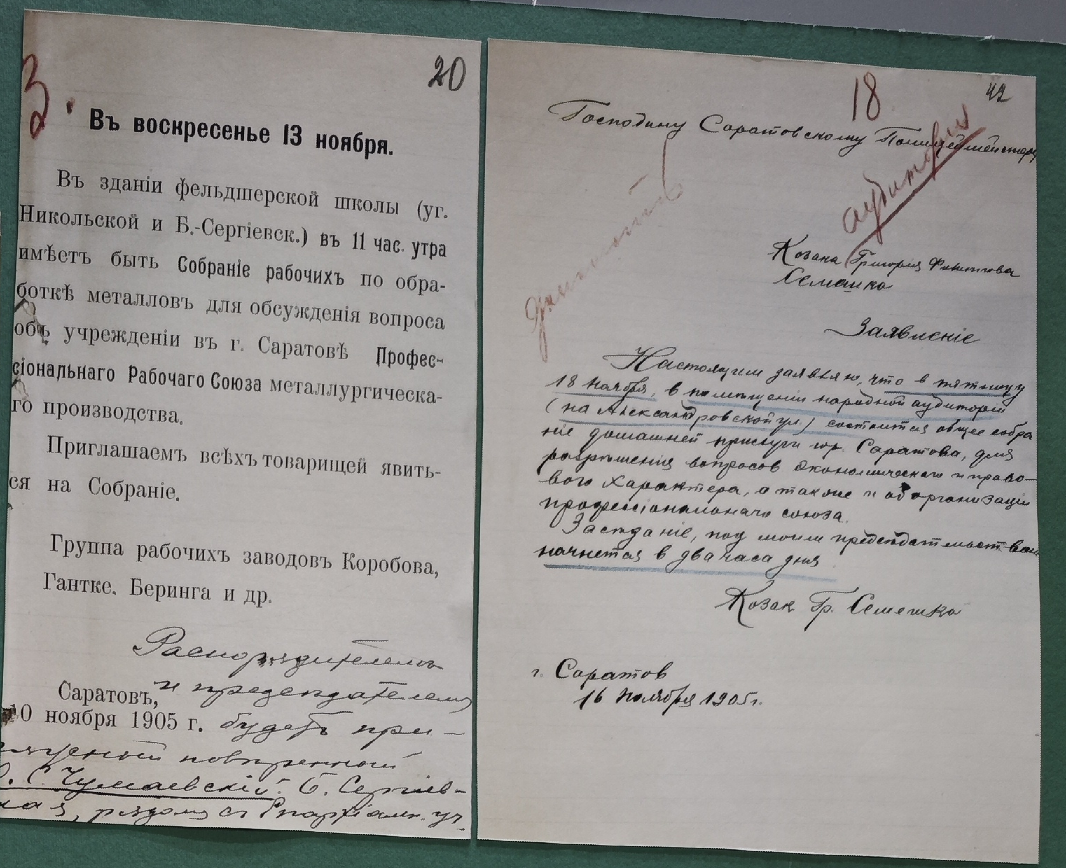 3.
20
Въ воскресенье 13 ноября.
Въ зданіи фельдшерской школы (уг.
Никольской и Б.-Сергіевск.) въ 11 час. утра
имѣетъ быть Собраніе рабочихъ по обра-
боткѣ металловъ для обсужденія вопроса
объ учрежденіи въ г. Саратовѣ Профес-
сіональнаго Рабочаго Союза металлургическа-
го производства.
Приглашаемъ всѣхъ товарищей явить-
ся на Собраніе.
Группа рабочихъ заводовъ Коробова,
Гантке, Беринга и др.
Распорядителемъ
Саратовъ, и предсѣдателемъ
10 ноября 1905 г. будетъ при-
сяжный повѣренный
С. Чумаевскій. Б. Сергіев-
ская, рядомъ съ Епархіальн. уч.
18
42
Господину Саратовскому Полицеймейстеру
аудиторія
Козака Григорія Филиппова
Семешко
Заявленіе
Настоящим заявляю, что в пятницу
18 ноября, в помѣщении народной аудиторіи
(на Александровской ул.) состоится общее собра
ніе домашней прислуги гор. Саратова, для
разрѣшенія вопросов экономическаго и право-
вого характера, а также и об организаціи
профессіональнаго союза.
Засѣданіе, под моим предсѣдательством
начнется в два часа дня.
Козак Гр. Семешко
г. Саратов
16 ноября 1905 г.